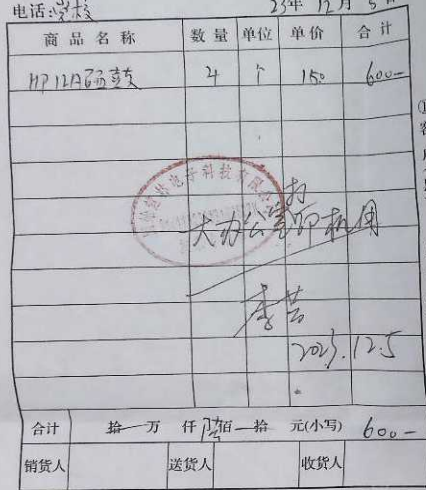 电话: 学校 23年 12月 5日
商品名称 数量 单位 单价 合计
HP12A硒鼓 4 个 150 600—
电子科技有限
大办公室打印机用
2023.12.5
合计 拾 万 仟 陆佰 拾 元(小写) 600—
销货人 送货人 收货人